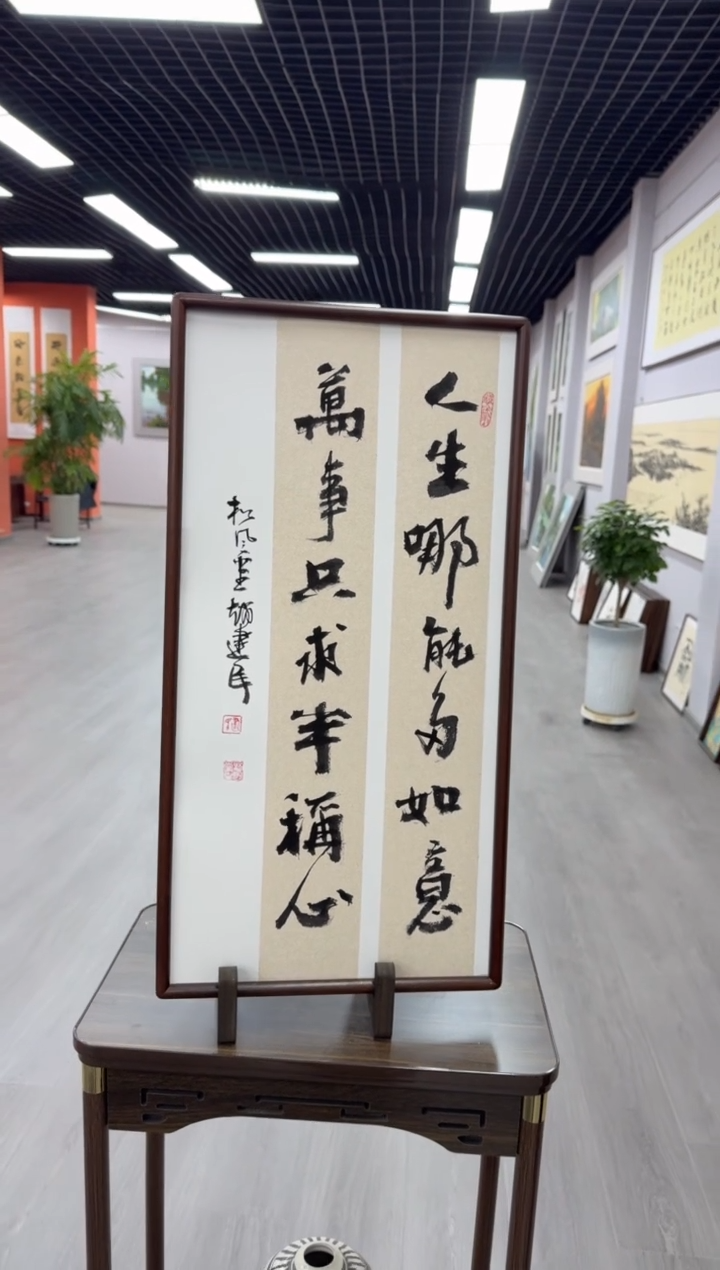 人生哪能多如意
萬事只求半稱心
松风堂 趙建民